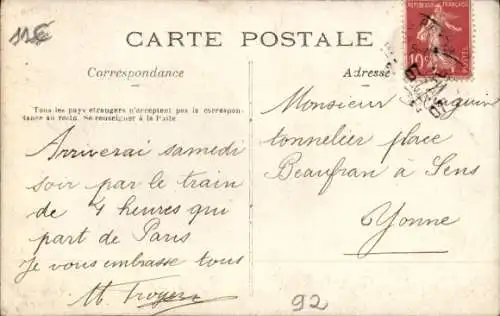 11€
RÉPUBLIQUE FRANÇAISE
10c POSTES
CARTE POSTALE
Correspondance
Adresse
Tous les pays étrangers n'acceptent pas la correspon-
dance au recto. Se renseigner à la Poste
Arriverai samedi
soir par le train
de 4 heures qui
part de Paris
Je vous embrasse tous
Monsieur
tonnelier place
Beaufran à Sens
Yonne
92